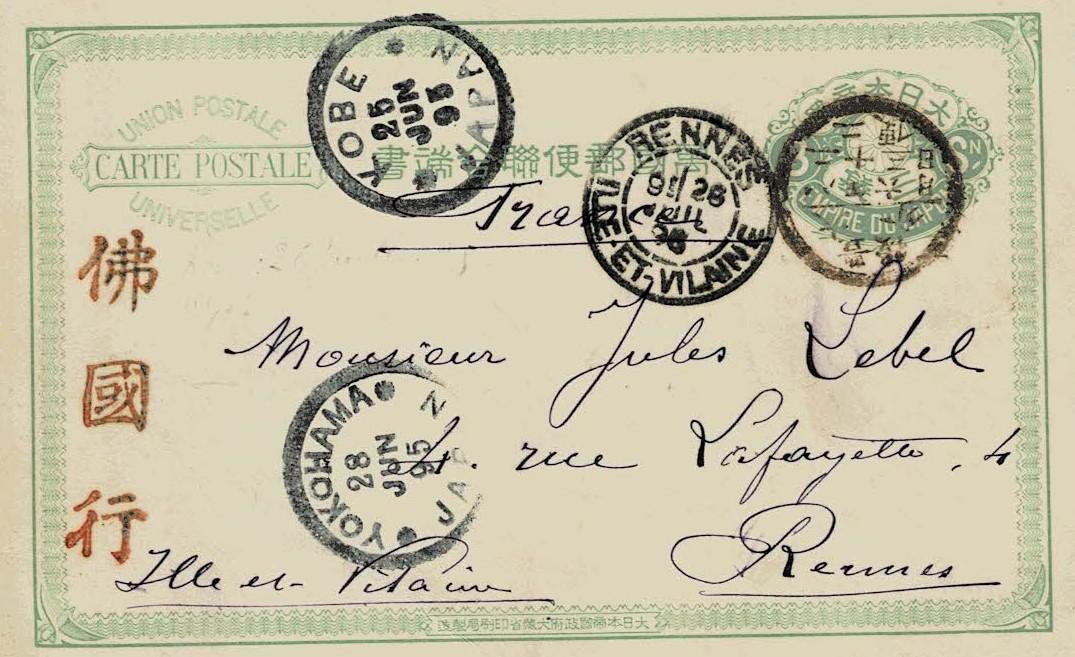 UNION POSTALE
CARTE POSTALE
UNIVERSELLE
KOBE
25
JUN
95
JAPAN
萬國郵便聯合端書
大日本帝國
EMPIRE DU JAPON
RENNES
28
JUIL
ILLE-ET-VILAINE
France
佛國行
Monsieur Jules Lebel
4. rue Lafayette. 4
Rennes
Ille et Vilaine
YOKOHAMA
28
JUN
95
JAPAN
大日本帝國政府大藏省印刷局製造